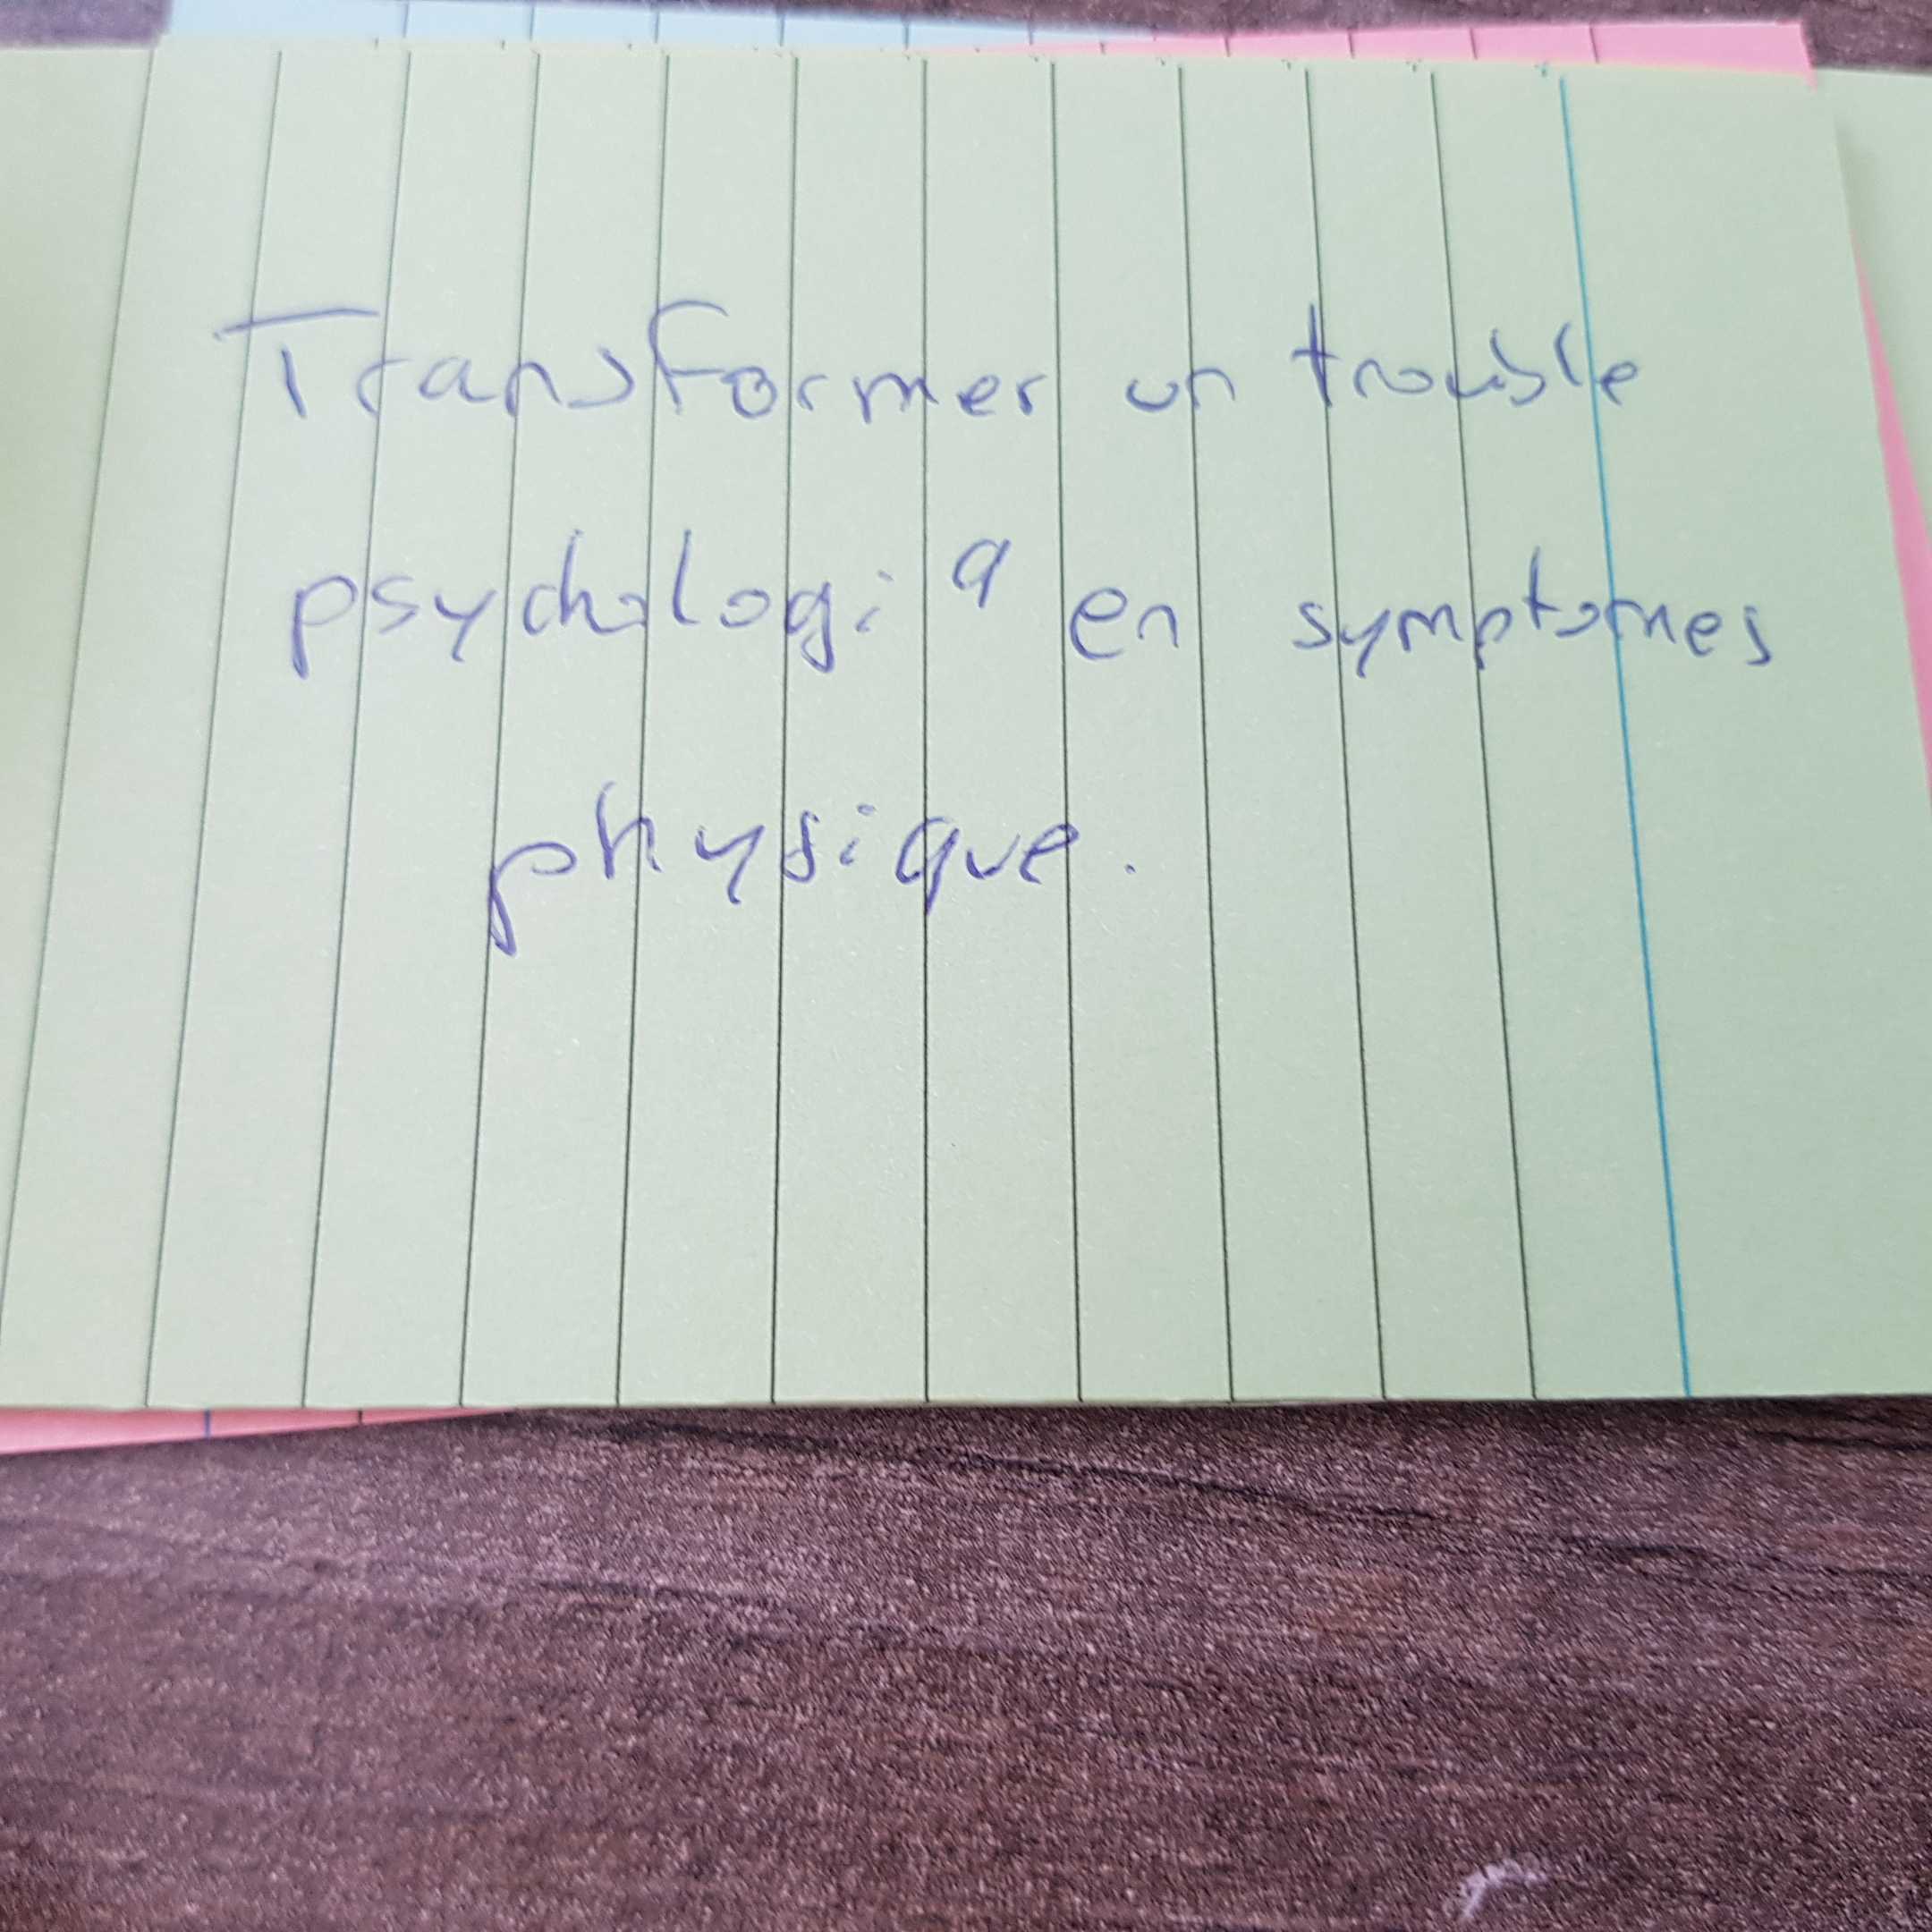 Transformer un trouble
psychologi q en symptomes
physique.